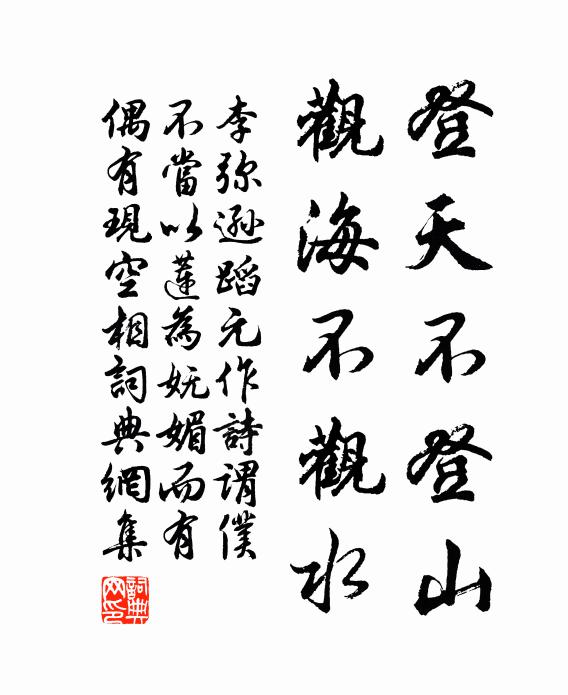 登天不登山
觀海不觀水
李弥遜蹈元作詩謂僕
不當以蓮為妩媚而有
偶有現空相詞典網集
詞典
网印